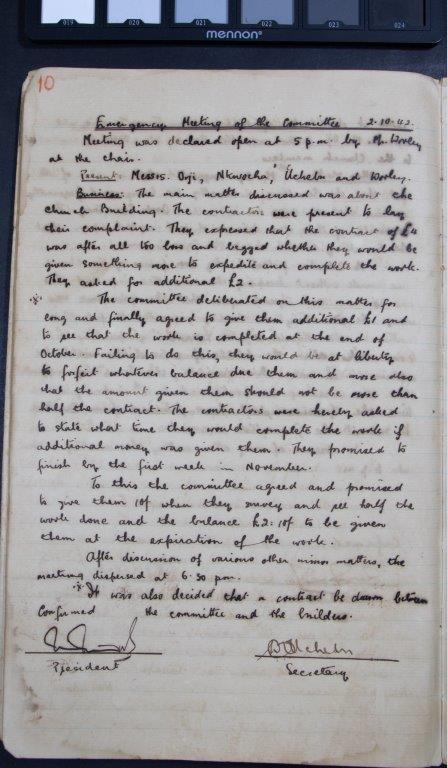 019 020 021 022 023 024
mennon
10
Emergency Meeting of the Committee 2-10-42
Meeting was declared open at 5 p.m. by Mr. Worley
at the chair.
Present: Messrs. Orji, Nkwocha, Uchebu and Worley.
Business: The main matter discussed was about the
church Building. The contractors were present to lay
their complaint. They expressed that the contract of £4
was after all too low and begged whether they would be
given something more to expedite and complete the work.
They asked for additional £2.
The committee deliberated on this matter for
long and finally agreed to give them additional £1 and
to see that the work is completed at the end of
October. Failing to do this, they would be at liberty
to forfeit whatever balance due them and more also
that the amount given them should not be more than
half the contract. The contractors were hereby asked
to state what time they would complete the work if
additional money was given them. They promised to
finish by the first week in November.
To this the committee agreed and promised
to give them 10/ when they survey and see half the
work done and the balance £2:10/ to be given
them at the expiration of the work.
After discussion of various other minor matters, the
meeting dispersed at 6.30 pm.
It was also decided that a contract be drawn between
Confirmed the committee and the builders.
President
Secretary